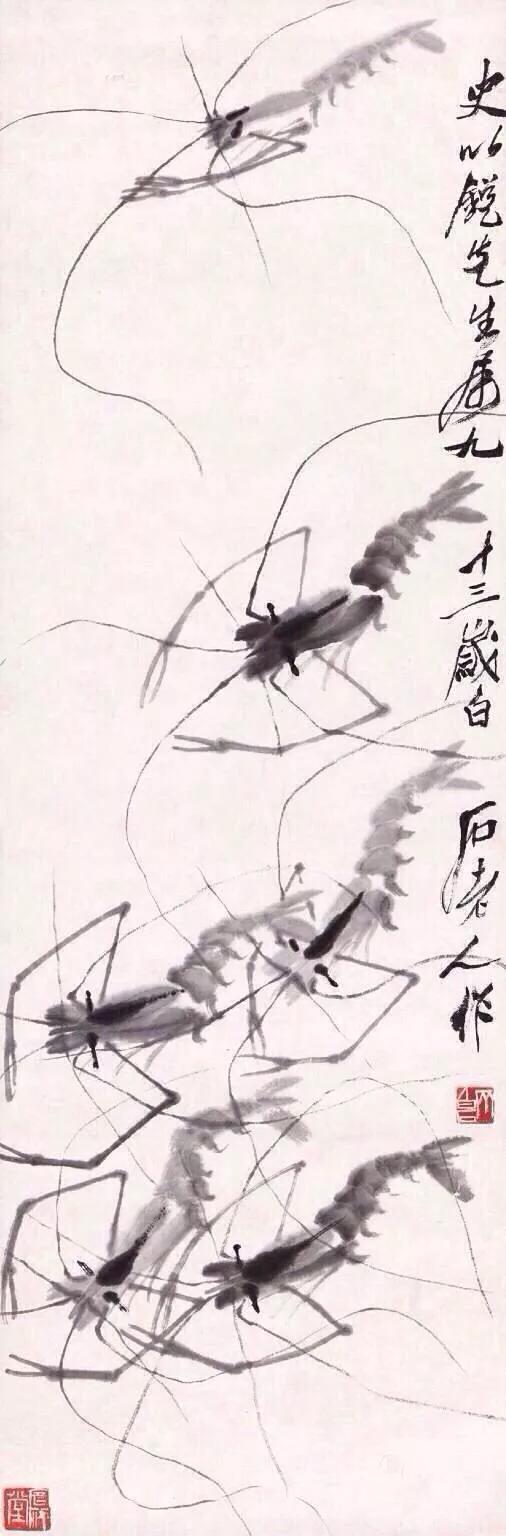 史以鋭先生属九十三歲白石老人作
白石